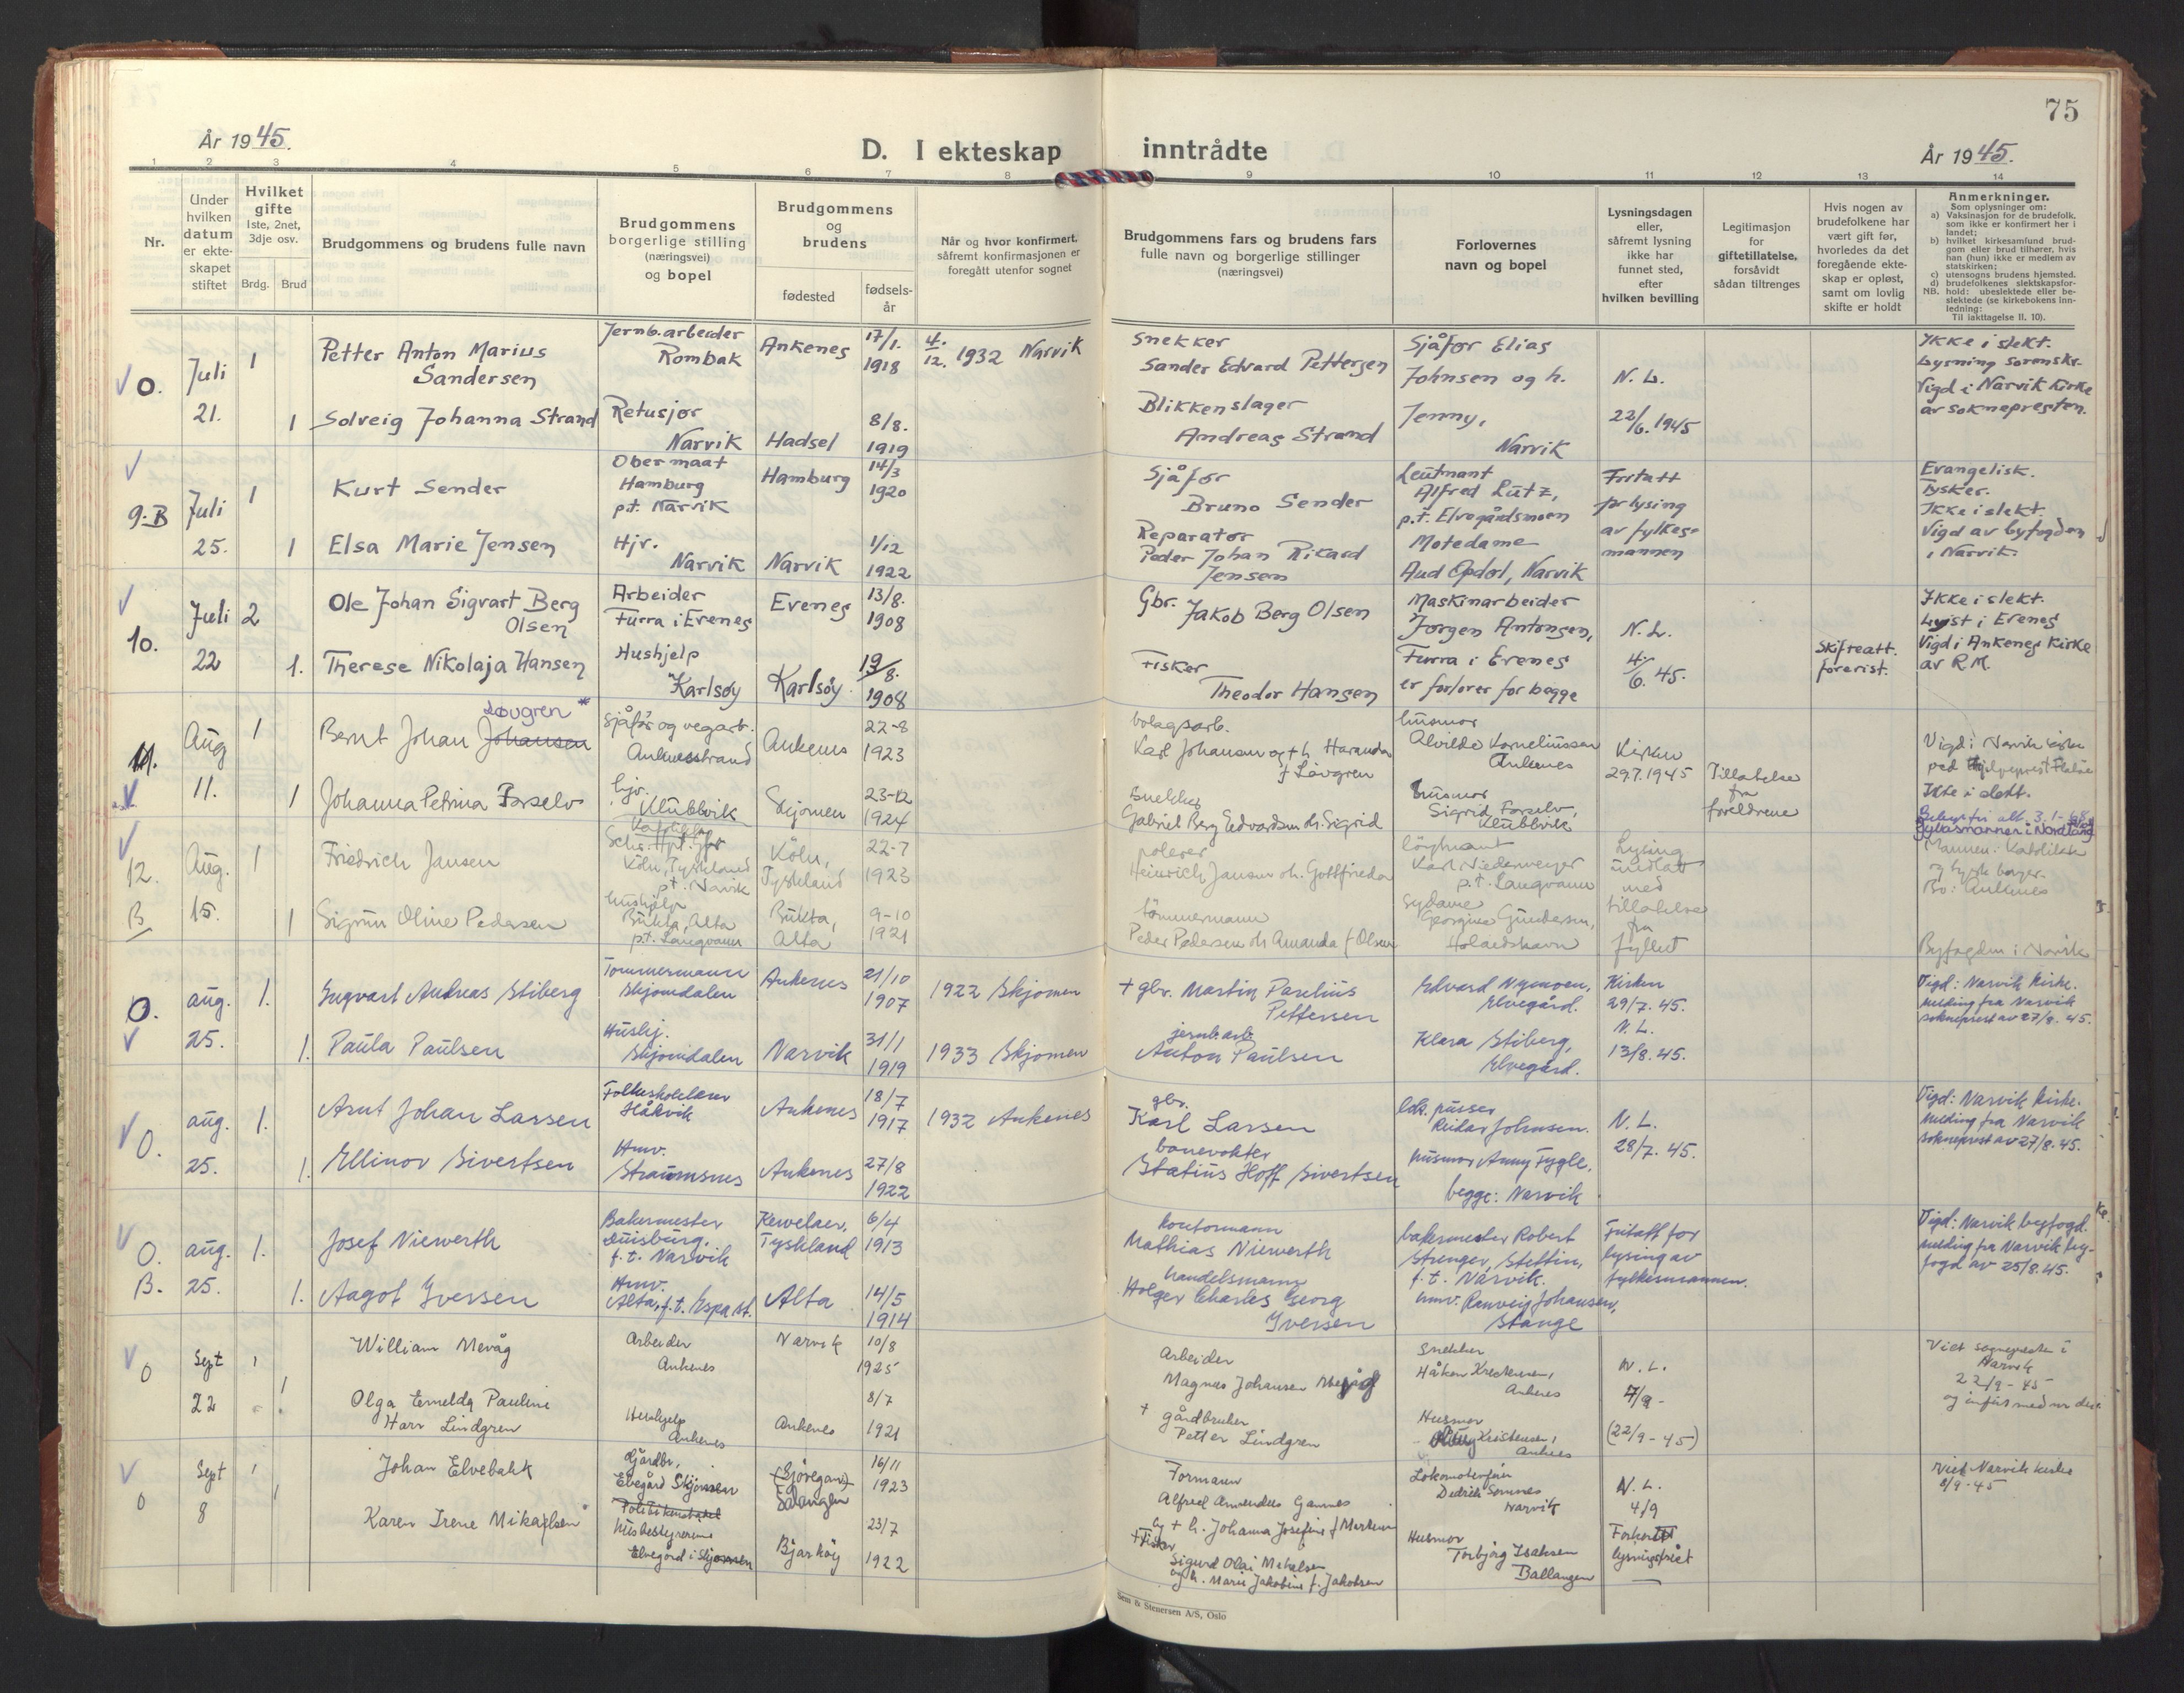 75
År 1945.
D. I ekteskap inntrådte
År 1945.
1 2 3 4 5 6 7 8 9 10 11 12 13 14
Nr.
Under hvilken datum er ekteskapet stiftet
Hvilket gifte
1ste, 2net, 3dje osv.
Brdg. Brud
Brudgommens og brudens fulle navn
Brudgommens borgerlige stilling (næringsvei) og bopel
Brudgommens og brudens
fødested
fødselsår
Når og hvor konfirmert, såfremt konfirmasjonen er foregått utenfor sognet
Brudgommens fars og brudens fars fulle navn og borgerlige stillinger (næringsvei)
Forlovernes navn og bopel
Lysningsdagen eller, såfremt lysning ikke har funnet sted, efter hvilken bevilling
Legitimasjon for giftetillatelse, forsåvidt sådan tiltrenges
Hvis nogen av brudefolkene har vært gift før, hvorledes da det foregående ekteskap er opløst, samt om lovlig skifte er holdt
Anmerkninger.
Som oplysninger om:
a) Vaksinasjon for de brudefolk, som ikke er konfirmert her i landet;
b) hvilket kirkesamfund brudgom eller brud tilhører, hvis han (hun) ikke er medlem av statskirken;
c) utensogns brudens hjemsted.
d) brudefolkenes slektskapsforhold: ubeslektede eller beslektede (se kirkebokens innledning:
NB. Til iakttagelse II. 10).
0. Juli 1 Petter Anton Marius Sandersen Jernb.arbeider Rombak Ankenes 17/1. 1918 4/12. 1932 Narvik Snekker Sander Edvard Pettersen Sjåfør Elias Johnsen og h. N. L. Ikke i slekt. Lysning sorenskr.
21. 1 Solveig Johanna Strand Retusjør Narvik Hadsel 8/8. 1919 Blikkenslager Andreas Strand Jenny, Narvik 22/6. 1945 Vigd i Narvik Kirke av soknepresten.
9.B Juli 1 Kurt Sender Obermaat Hamburg p.t. Narvik Hamburg 14/3 1920 Sjåfør Bruno Sender Leutnant Alfred Lutz, p.t. Elvegårdsmoen Evangelisk. Tysker. Ikke i slekt.
25. 1 Elsa Marie Jensen Hjv. Narvik Narvik 1/12 1922 Reparatør Peder Johan Rikard Jensen Motedame Aud Opdøl, Narvik av fylkesmannen Vigd av byfogden i Narvik
10. Juli 2 Ole Johan Sigvart Berg Olsen Arbeider Furra i Evenes Evenes 13/8. 1908 Gbr. Jakob Berg Olsen Maskinarbeider Jørgen Antonsen, N. L. Ikke i slekt. Lyst i Evenes
22 1. Therese Nikolaja Hansen Hushjelp Karlsøy Karlsøy 19/8. 1908 Fisker Theodor Hansen Furra i Evenes er forlover for begge 4/6. 45. Skifteatt. forevist. Vigd i Ankenes Kirke av R.M.
11. Aug 1 Bernt Johan Johansen Løvgren * Sjåfør og vegarb. Ankenesstrand Ankenes 22-8 1923 Karl Johansen og h. f Løvgren husmor Alvilde Korneliussen Ankenes Kirken 29.7.1945 Tillatelse fra foreldrene Vigd i Narvik kirke
11. 1 Johanna Petrina Forselv hjv. Klubbvik Skjomen 23-12 1924 Snekker Gabriel Berg Edvardsen oh. Sigrid husmor Sigrid Forselv, Klubbvik Ikke i slekt. Fylkesmannen i Nordland
12. B Aug. 1 Friedrich Jansen Köln, Tyskland p.t. Narvik Köln, Tyskland 22-7 1923 polerer Heinrich Jansen oh. Gottfrieda løytnant Karl Niedermeyer p.t. Langvann Lysing unnlatt med tillatelse fra fylket Mannen: Katolikk og tysk borger. Bo: Ankenes
15. 1 Sigrun Oline Pedersen hushjelp Bukta, Alta p.t. Langvann Bukta, Alta 9-10 1921 tømmermann Peder Pedersen oh Amanda f Olsen sydame Georgine Gundersen, Byfogden i Narvik
0. aug. 1. Ingvart Andreas Stiberg Tømmermann Skjomdalen Ankenes 21/10 1907 1922 Skjomen + gbr. Martin Parelius Pettersen Edvard Nymoen, Elvegård. Kirken 29/7. 45. Vigd: Narvik kirke. Melding fra Narvik sokneprest av 27/8. 45.
25. 1. Paula Paulsen Hushj. Skjomdalen Narvik 31/1 1919 1933 Skjomen jernb.arb. Anton Paulsen Klara Stiberg, Elvegård. N. L. 13/8. 45.
0. aug. 1. Arnt Johan Larsen Folkeskolelærer Håkvik Ankenes 18/7 1917 1932 Ankenes gbr. Karl Larsen lok. pusser Reidar Johnsen. N. L. Vigd: Narvik kirke. Melding fra Narvik sokneprest av 27/8. 45.
25. 1. Ellinor Sivertsen Hmv. Straumsnes Ankenes 27/8 1922 banevokter Statius Hoff Sivertsen husmor Anny Fygle, begge: Narvik 28/7. 45.
0. B. aug. 1. Josef Niewerth Bakermester Duisburg. f.t. Narvik Kevelaer, Tyskland 6/4 1913 kontormann Mathias Niewerth bakermester Robert Strenger, Stettin, f.t. Narvik. Fritatt for lysing av fylkesmannen. Vigd: Narvik byfogd. Melding fra Narvik byfogd av 25/8. 45.
25. 1. Aagot Iversen Hmv. Alta, f.t. Espa st. Alta 14/5 1914 handelsmann Holger Charles Georg Iversen hmv. Ranveig Johansen, Stange
0 Sept 1 William Mevåg Arbeider Ankenes Narvik 10/8 1925 Arbeider Magnus Johansen Mevåg Snekker Håkon Kristensen, Ankenes N. L. 7/9 - Viet sognepresten i Narvik 22/9 - 45
22 1 Olga Emelda Pauline Harr Lindgren Hushjelp Ankenes Ankenes 8/7 1921 + gårdbruker Petter Lindgren Husmor Kristensen, Ankenes (22/9 - 45)
0 Sept 1 Johan Elvebakk Gårdbr. Elvegård Skjomen (Sjøvegan) Salangen 16/11 1923 Formann Alfred Amandus Gamnes og + h. Johanna Josefine f Markussen Lokomotivfører Dedrik Somnes Narvik N. L. 4/9 Viet Narvik kirke 8/9 - 45
8 1 Karen Irene Mikalsen husbestyrerinne Elvegård i Skjomen Bjarkøy 23/7 1922 + Fisker Sigurd Olai Mikalsen og h. Marie Jakobine f. Jakobsen Husmor Torbjørg Isaksen Ballangen lysningsfrist
Sem & Stenersen A/S, Oslo